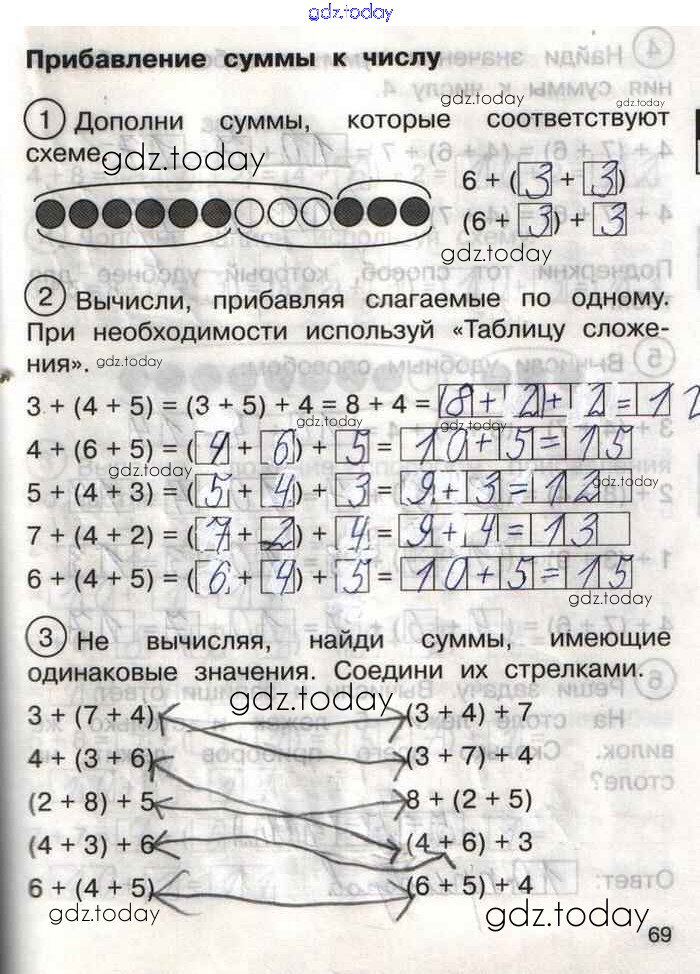 gdz.today
Прибавление суммы к числу
gdz.today
gdz.today
1 Дополни суммы, которые соответствуют
схеме.
gdz.today
6 + (3 + 3)
(6 + 3) + 3
gdz.today
2 Вычисли, прибавляя слагаемые по одному.
При необходимости используй «Таблицу сложе-
ния».
gdz.today
3 + (4 + 5) = (3 + 5) + 4 = 8 + 4 = 8 + 2 + 2 = 12
gdz.today
4 + (6 + 5) = (4 + 6) + 5 = 10 + 5 = 15
gdz.today
5 + (4 + 3) = (5 + 4) + 3 = 9 + 3 = 12
gdz.today
7 + (4 + 2) = (7 + 2) + 4 = 9 + 4 = 13
6 + (4 + 5) = (6 + 4) + 5 = 10 + 5 = 15
gdz.today
3 Не вычисляя, найди суммы, имеющие
одинаковые значения. Соедини их стрелками.
gdz.today
3 + (7 + 4) (3 + 4) + 7
4 + (3 + 6) (3 + 7) + 4
(2 + 8) + 5 8 + (2 + 5)
(4 + 3) + 6 (4 + 6) + 3
6 + (4 + 5) (6 + 5) + 4
gdz.today
gdz.today
69